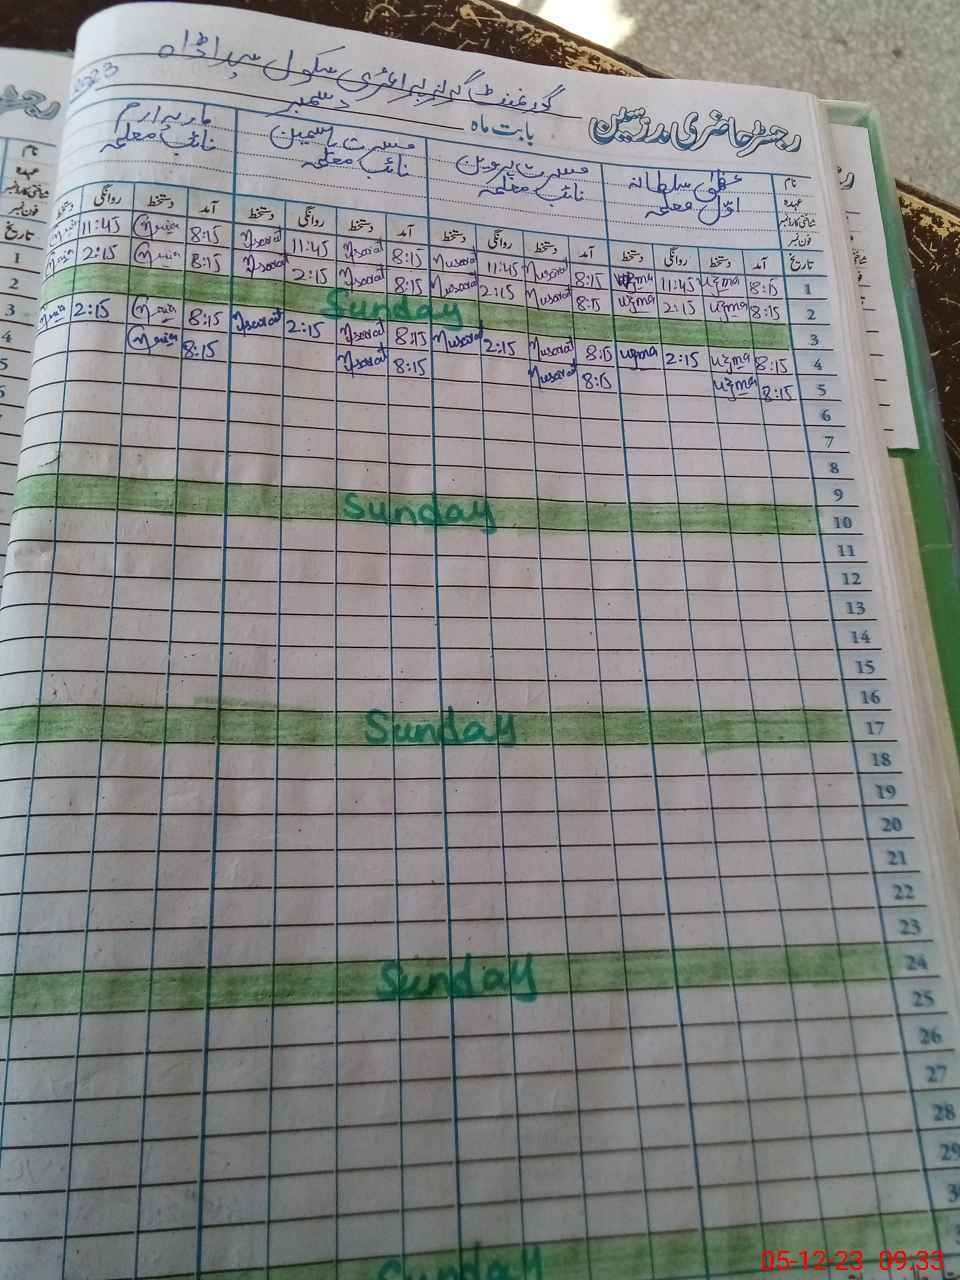 رجسٹر حاضری مدرسین گورنمنٹ گرلز پرائمری سکول
بابت ماہ دسمبر 2023
نام عظمیٰ سلطانہ مسرت پروین مسرت یاسمین ماریہ ارم
عہدہ اوّل معلمہ نائب معلمہ نائب معلمہ نائب معلمہ
شناختی کارڈ نمبر
فون نمبر
تاریخ آمد دستخط روانگی دستخط آمد دستخط روانگی دستخط آمد دستخط روانگی دستخط آمد دستخط روانگی دستخط
1 8:15 uzma 11:45 uzma 8:15 Musarat 11:45 Musarat 8:15 Musarat 11:45 Musarat 8:15 11:45
2 8:15 uzma 2:15 uzma 8:15 Musarat 2:15 Musarat 8:15 Musarat 2:15 Musarat 8:15 2:15
3 Sunday
4 8:15 uzma 2:15 uzma 8:15 Musarat 2:15 Musarat 8:15 Musarat 2:15 Musarat 8:15 2:15
5 8:15 uzma 8:15 Musarat 8:15 Musarat 8:15
6
7
8
9
10 Sunday
11
12
13
14
15
16
17 Sunday
18
19
20
21
22
23
24 Sunday
25
26
27
28
29
Sunday
05-12-23 09:33